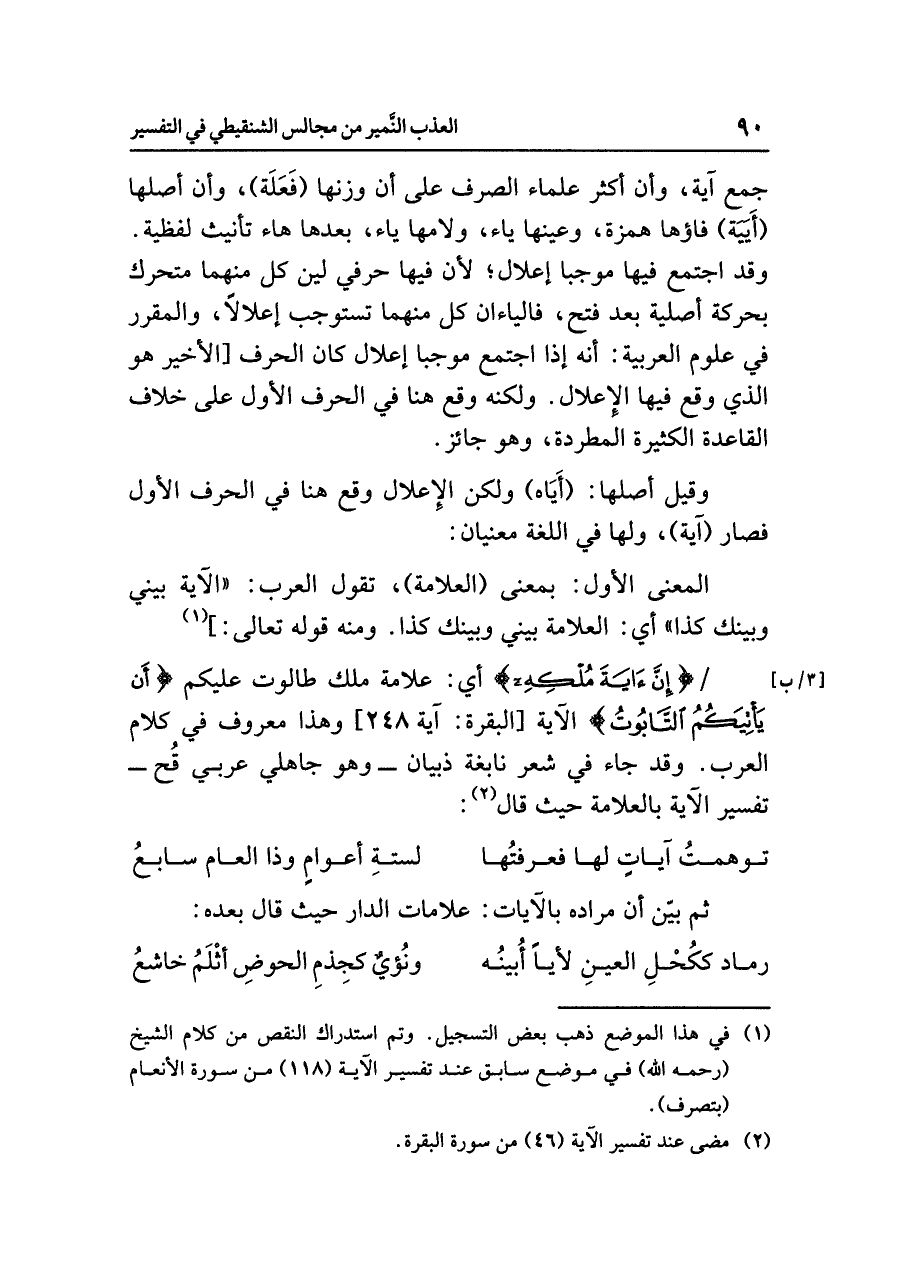 ٩٠ العذب النَّمير من مجالس الشنقيطي في التفسير
جمع آية، وأن أكثر علماء الصرف على أن وزنها (فَعَلَة)، وأن أصلها
(أَيَيَة) فاؤها همزة، وعينها ياء، ولامها ياء، بعدها هاء تأنيث لفظية.
وقد اجتمع فيها موجبا إعلال؛ لأن فيها حرفي لين كل منهما متحرك
بحركة أصلية بعد فتح، فالياءان كل منهما تستوجب إعلالاً، والمقرر
في علوم العربية: أنه إذا اجتمع موجبا إعلال كان الحرف [الأخير هو
الذي وقع فيها الإعلال. ولكنه وقع هنا في الحرف الأول على خلاف
القاعدة الكثيرة المطردة، وهو جائز.
وقيل أصلها: (أَيَاه) ولكن الإعلال وقع هنا في الحرف الأول
فصار (آية)، ولها في اللغة معنيان:
المعنى الأول: بمعنى (العلامة)، تقول العرب: «الآية بيني
وبينك كذا» أي: العلامة بيني وبينك كذا. ومنه قوله تعالى:](١)
[٣/ب] / ﴿إِنَّ ءَايَةَ مُلْكِهِۦٓ﴾ أي: علامة ملك طالوت عليكم ﴿أَن
يَأْتِيَكُمُ ٱلتَّابُوتُ﴾ الآية [البقرة: آية ٢٤٨] وهذا معروف في كلام
العرب. وقد جاء في شعر نابغة ذبيان ــ وهو جاهلي عربي قُح ــ
تفسير الآية بالعلامة حيث قال(٢):
توهمتُ آياتٍ لها فعرفتُها لستةِ أعوامٍ وذا العام سابعُ
ثم بيّن أن مراده بالآيات: علامات الدار حيث قال بعده:
رماد ككُحْلِ العينِ لأياً أُبينُه ونُؤيٌ كجِذمِ الحوضِ أثْلَمُ خاشعُ
(١) في هذا الموضع ذهب بعض التسجيل. وتم استدراك النقص من كلام الشيخ
(رحمه الله) في موضع سابق عند تفسير الآية (١١٨) من سورة الأنعام
(بتصرف).
(٢) مضى عند تفسير الآية (٤٦) من سورة البقرة.